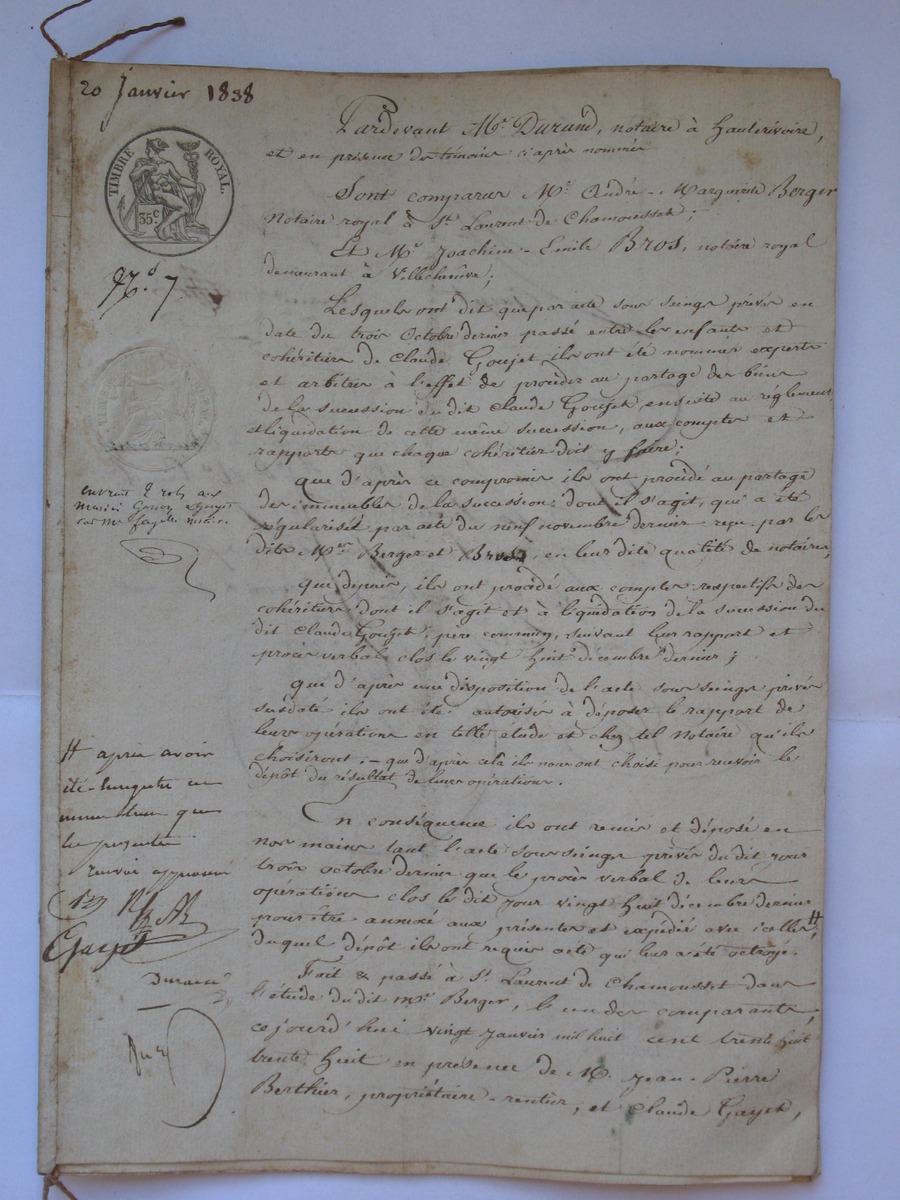 20 Janvier 1838
TIMBRE ROYAL.
35 c
Pardevant Me. Durand, notaire à hauterivoire,
et en présence des témoins ci après nommés
Sont comparus Me. André-Marguerite Berger
Notaire royal à St. Laurent de Chamousset;
Et Me. Joachim-Emile Bros, notaire royal
demeurant à Villechenève;
Lesquels ont dit que par acte sous seings privés en
date du trois Octobre dernier passé entre les enfants et
cohéritiers de Claude Goujet ils ont été nommés experts
et arbitres à l'effet de procéder au partage des biens
de la succession du dit Claude Goujet, ensuite au réglement
et liquidation de cette même succession, aux comptes et
rapports que chaque cohéritier doit y faire;
que d'après ce compromis ils ont procédé au partage
des immeubles de la succession dont il s'agit, qui a été
régularisé par acte du neuf novembre dernier reçu par les
dits Mes. Berger et Bros, en leur dite qualité de notaires
que depuis, ils ont procédé aux comptes respectifs des
cohéritiers dont il s'agit et à liquidation de la succession du
dit Claude Goujet, père commun, suivant leur rapport et
procès verbal clos le vingt huit décembre dernier;
que d'après une disposition de l'acte sous seings privés
susdaté ils ont été autorisés à déposer le rapport de
leurs opérations en telle étude et chez tel Notaire qu'ils
choisiront; - que d'après cela ils nous ont choisi pour recevoir le
dépôt du résultat de leurs opérations.
En conséquence ils ont remis et déposé en
nos mains tant l'acte sous seings privés du dit jour
trois octobre dernier que le procès verbal de leurs
opérations clos le dit jour vingt huit décembre dernier
pour être annexé aux présentes et expédié avec icelles #
duquel dépôt ils ont requis acte qui leur a été octroyé.
Fait & passé à St. Laurent de Chamousset dans
l'étude du dit Me. Berger, l'un des comparants,
ce jourd'hui vingt Janvier mil huit cent trente huit
trente huit en présence de M. Jean-Pierre
Berthier, propriétaire-rentier, et Claude Gayet,
No. 7
# après avoir
été enregistré en
même tems que
les présentes
renvoi approuvé
Gayet
Durand